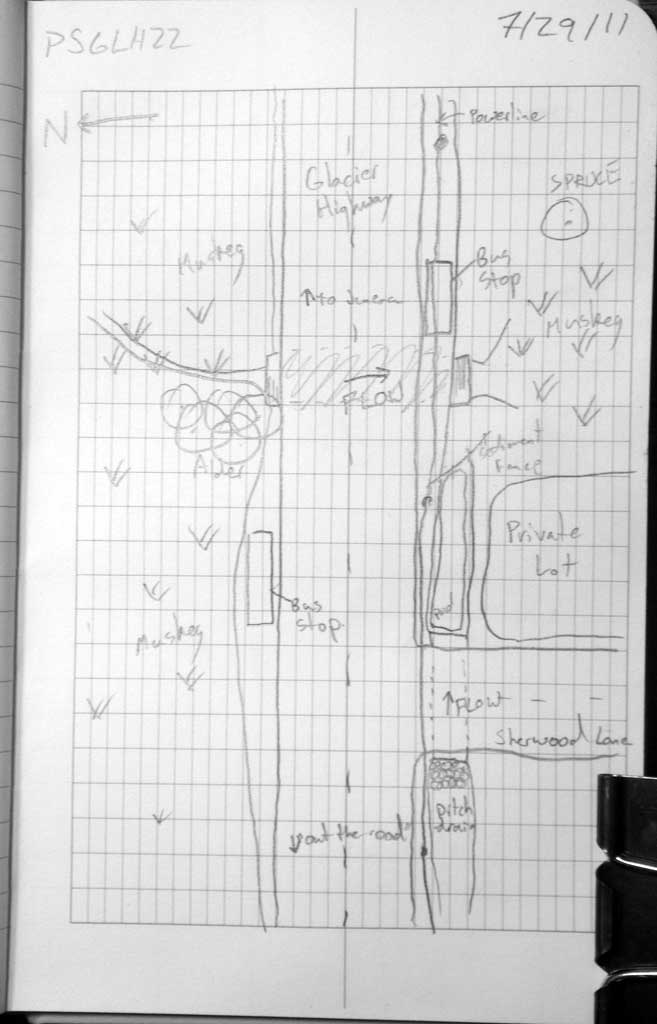 PSGLH22
7/29/11
N
Powerline
Glacier
Highway
SPRUCE
Muskeg
Bus
Stop
↑to Juneau
Muskeg
FLOW
Sediment
Fence
Alder
Private
Lot
Pond
Bus
Stop
Muskeg
↑FLOW
Sherwood Lane
Ditch
drain
↓"out the road"